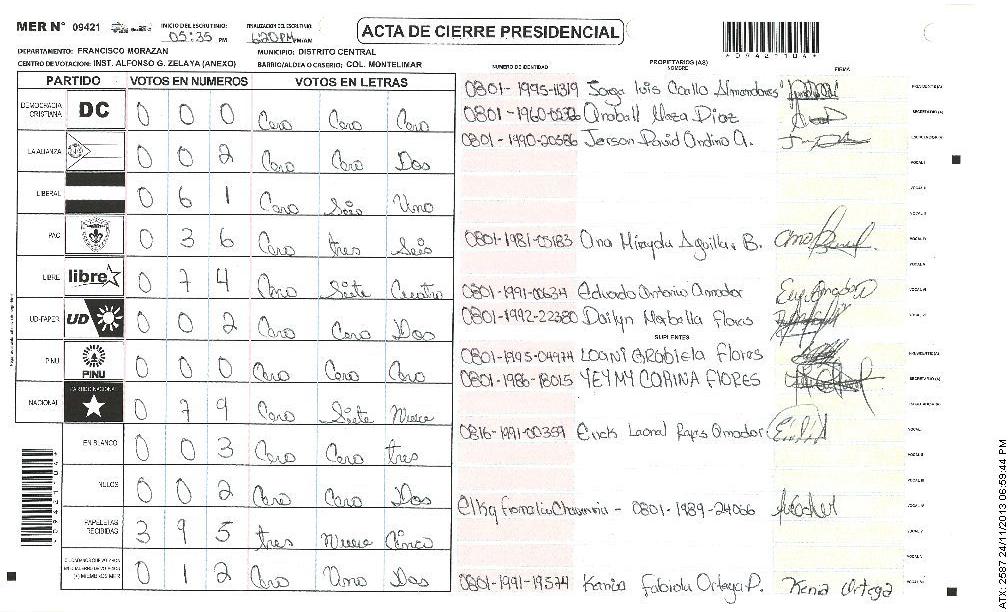 MER Nº 09421
INICIO DEL ESCRUTINIO:
05:35 PM
FINALIZACION DEL ESCRUTINIO:
6:20 PM PM/AM
ACTA DE CIERRE PRESIDENCIAL
*09421104*
DEPARTAMENTO: FRANCISCO MORAZAN
MUNICIPIO: DISTRITO CENTRAL
CENTRO DE VOTACION: INST. ALFONSO G. ZELAYA (ANEXO)
BARRIO/ALDEA O CASERIO: COL. MONTELIMAR
PARTIDO VOTOS EN NUMEROS VOTOS EN LETRAS
DEMOCRACIA CRISTIANA DC 0 0 0 Cero Cero Cero
LA ALIANZA 0 0 2 Cero Cero Dos
LIBERAL 0 6 1 Cero Seis Uno
PAC 0 3 6 Cero tres Seis
LIBRE libre 0 7 4 Cero Siete Cuatro
UD-FAPER UD 0 0 2 Cero Cero Dos
PINU PINU 0 0 0 Cero Cero Cero
NACIONAL PARTIDO NACIONAL 0 7 9 Cero Siete Nueve
EN BLANCO 0 0 3 Cero Cero tres
NULOS 0 0 2 Cero Cero Dos
PAPELETAS RECIBIDAS 3 9 5 tres Nueve Cinco
0 1 2 Cero Uno Dos
NUMERO DE IDENTIDAD PROPIETARIOS (AS) NOMBRE FIRMA
0801-1995-11319 Jorge Luis Coello Almendares PRESIDENTE(A)
0801-1960- Diaz SECRETARIO (A)
0801-1990-20586 Jerson David Ondino A. ESCRUTADOR (A)
VOCAL I
VOCAL II
VOCAL III
0801-1981-05183 Ana Aguilar B. VOCAL IV
VOCAL V
0801-1991-00634 Eduardo Antonio Amador VOCAL VI
0801-1992-22380 Dailyn Flores
SUPLENTES
0801-1995-04974 LOANI GRabiela Flores PRESIDENTE(A)
0801-1986-18015 YEYMY CORINA FLORES SECRETARIO (A)
0816-1991-00359 Erick Leonel Reyes Amador VOCAL I
VOCAL II
0801-1989-24006
0801-1991-19574 Kenia Fabiola Ortega P. Kenia Ortega
ATX: 2587 24/11/2013 06:59:44 PM